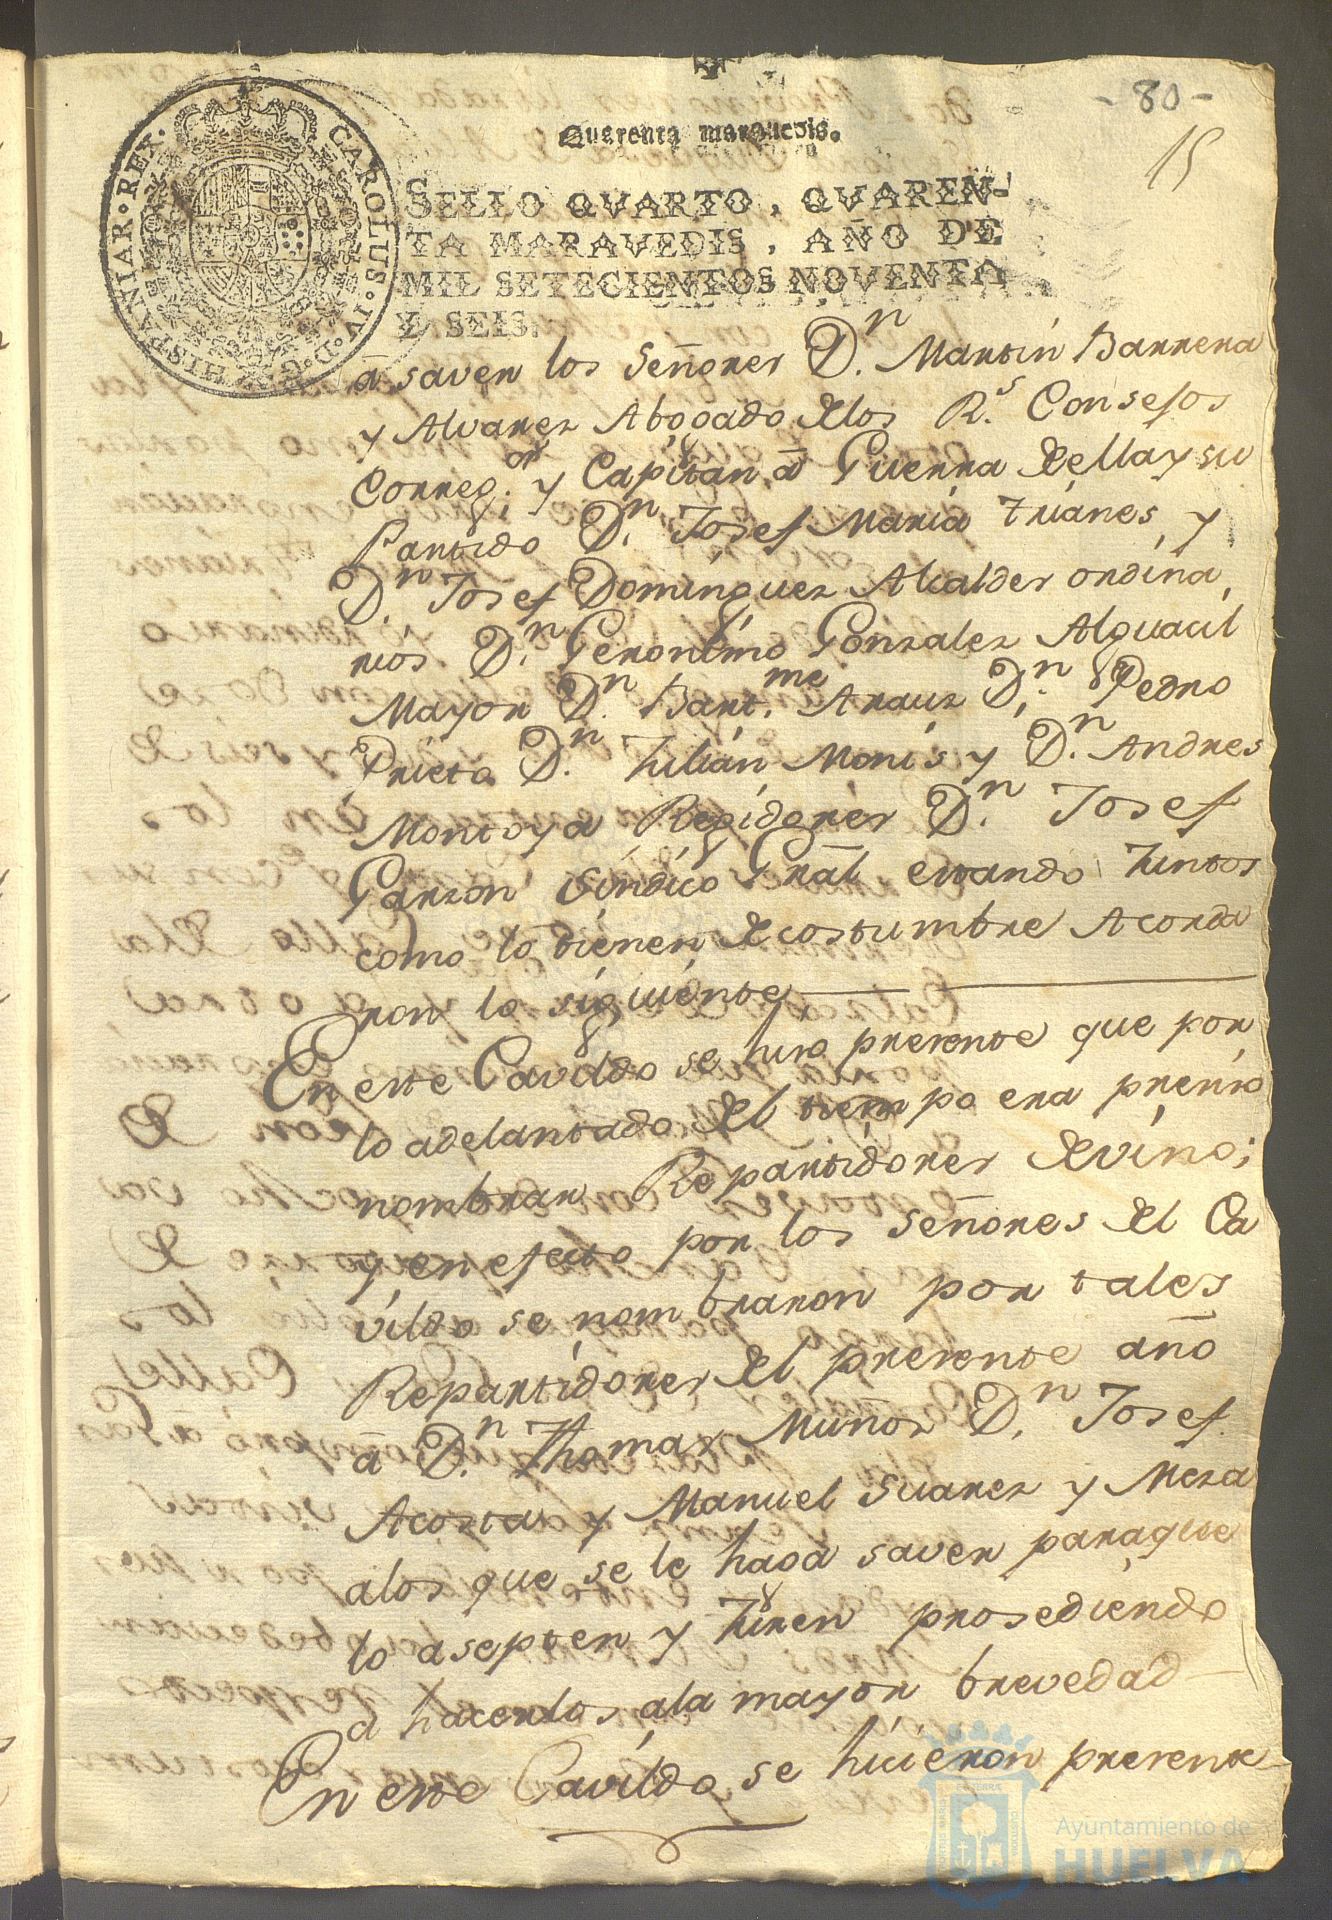 - 80 -
15
Quarenta maravedis.
HISPANIAR. REX. CAROLUS. IV. D. G.
SELLO QVARTO, QVAREN-
TA MARAVEDIS, AÑO DE
MIL SETECIENTOS NOVENTA
Y SEIS.
â saver los señores Dn. Martin Barrera
y Alvarez Abogado delos Rs. Consejos
Correg.or y Capitan â Guerra della y su
Partido Dn. Josef Maria Trianes, y
Dn. Josef Dominguez Alcaldes ordina
rios Dn. Geronimo Gonzalez Alguacil
Mayor Dn. Bart.me Arauz Dn. Pedro
Prieto Dn. Julian Monis y Dn. Andres
Montoya Regidores Dn. Josef
Garzon Sindico Gral estando juntos
como lo tienen de costumbre Acorda
ron lo siguiente
En este Cavildo se hizo presente que por
lo adelantado del tiempo era presiso
nombrar Repartidores de vino;
y en efecto por los señores del Ca
vildo se nombraron por tales
Repartidores del presente año
â Dn. Thomas Muños Dn. Josef
Acosta y Manuel Suarez y Meza
alos que se le haga saver paraque
lo asepten y juren prosediendo
a hacerlos ala mayor brevedad
En este Cavildo se hicieron presente
Ayuntamiento de
HUELVA